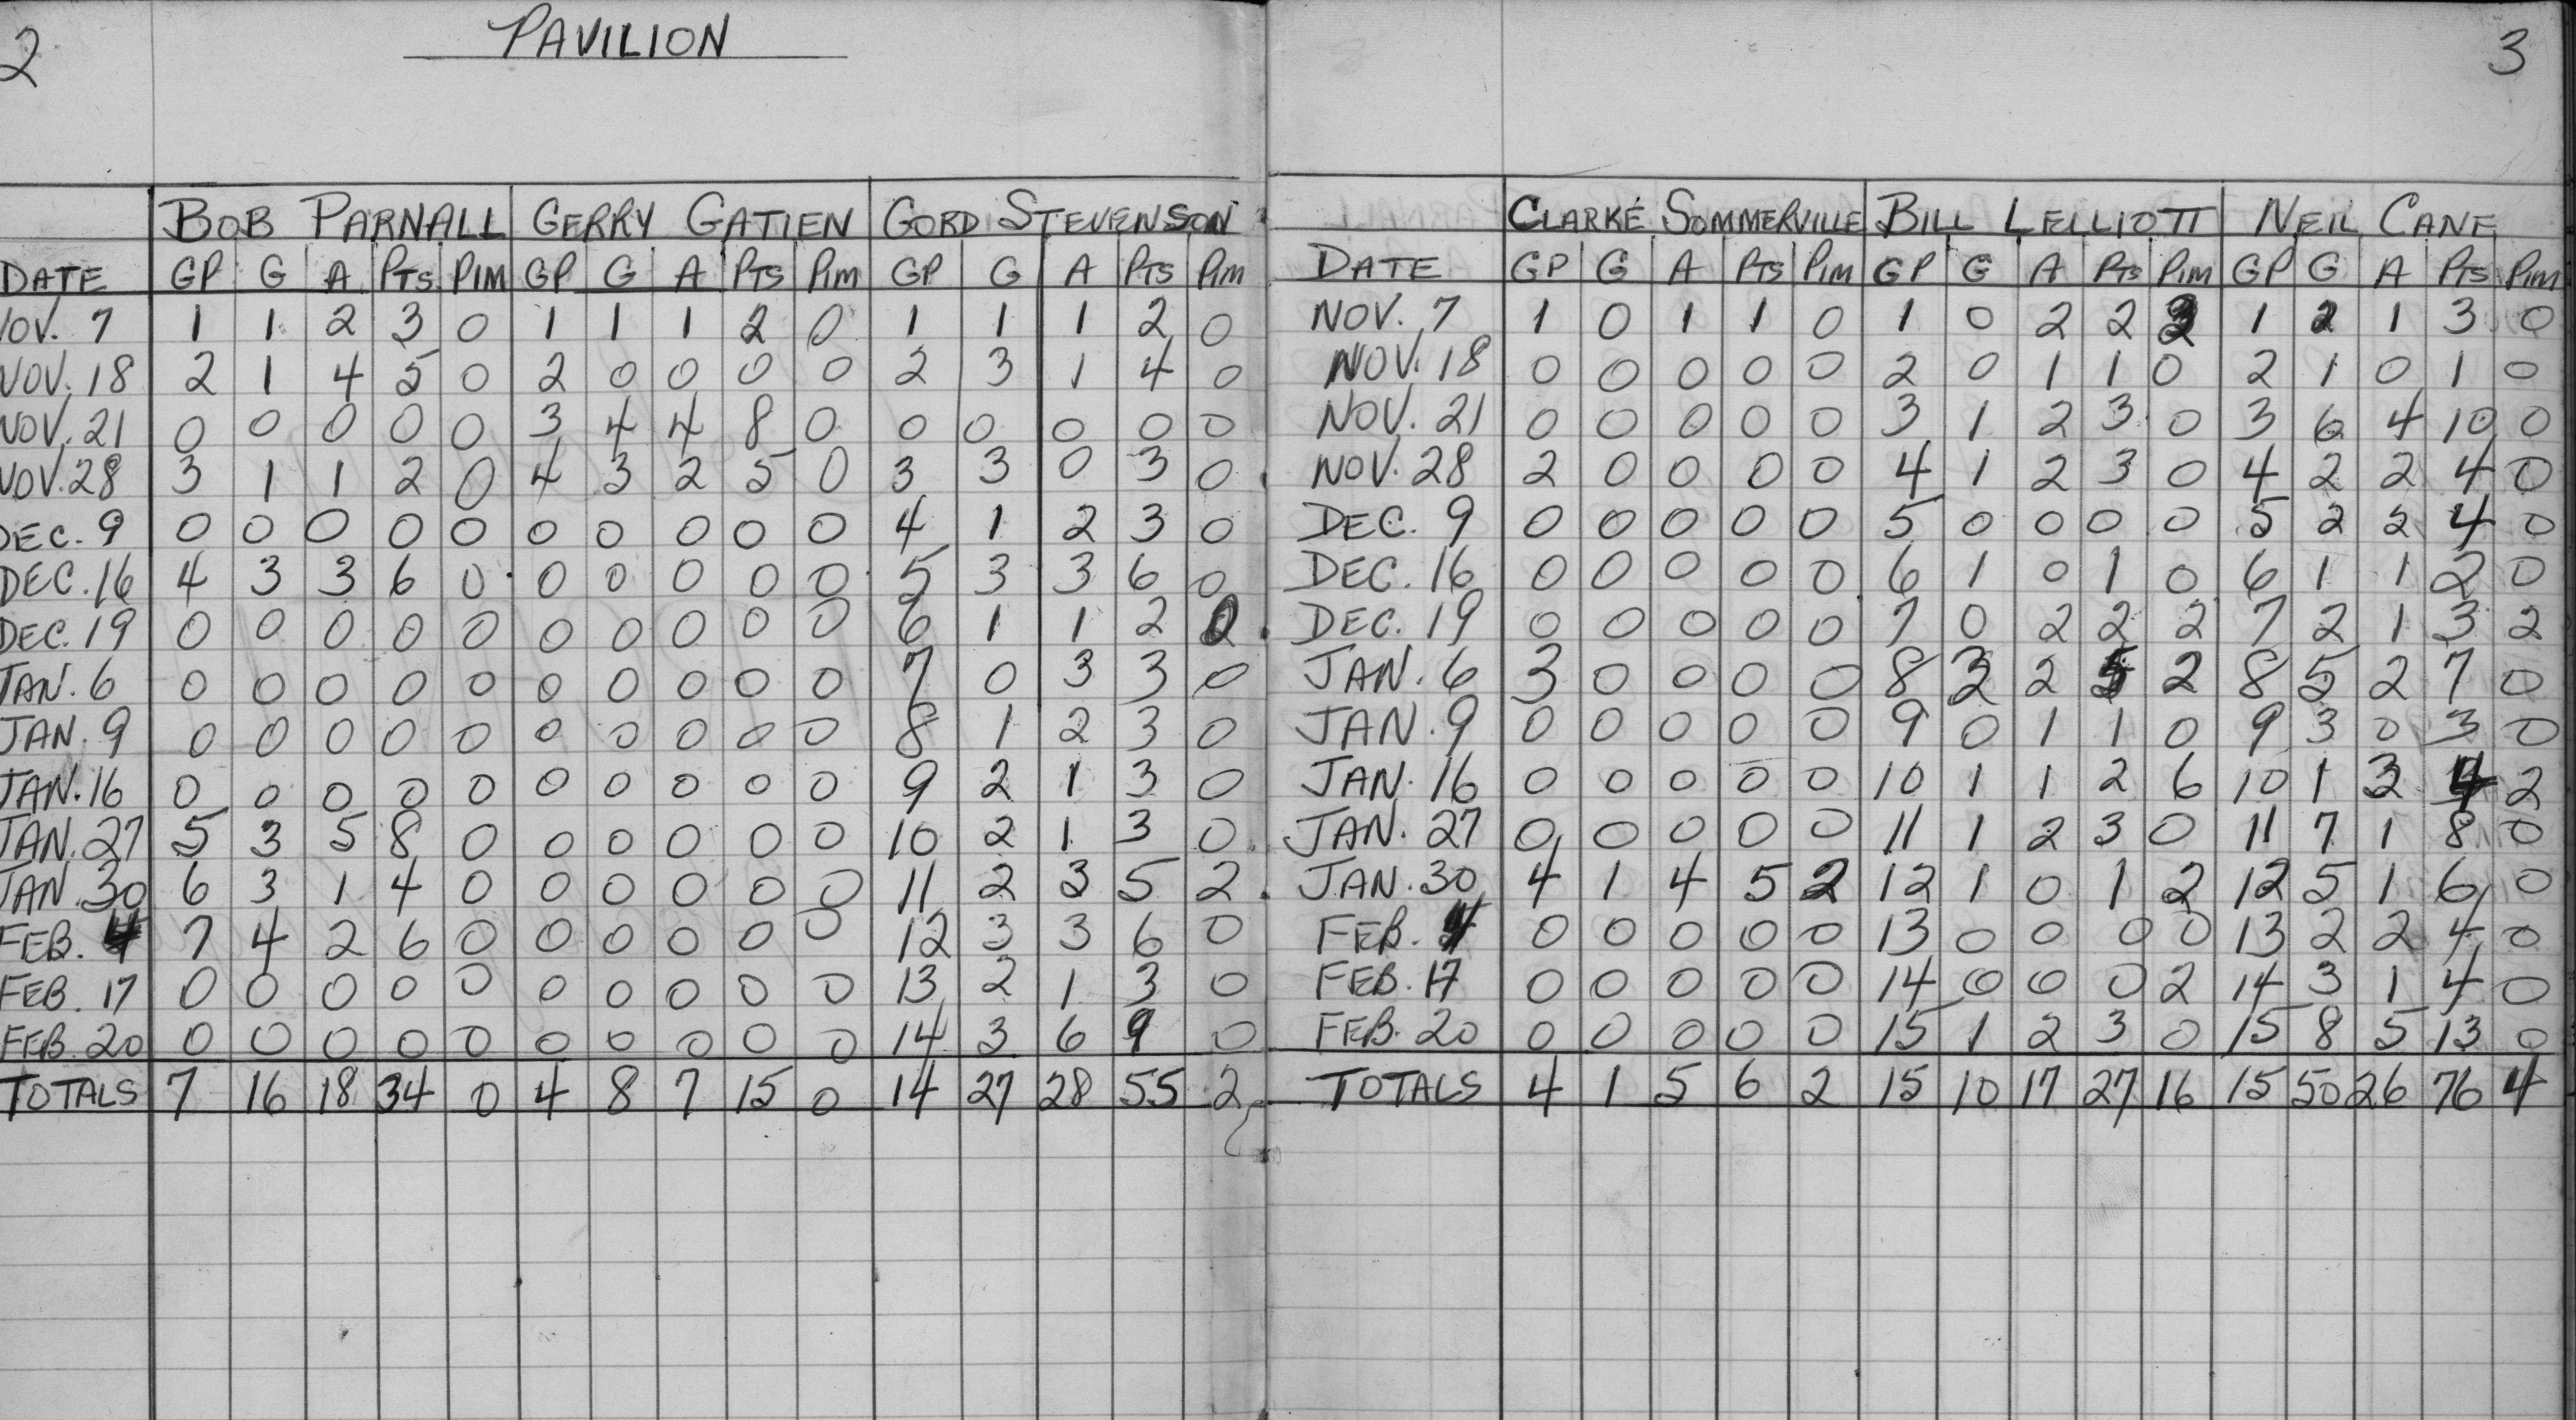 2 PAVILION
BOB PARNALL GERRY GATIEN GORD STEVENSON
DATE GP G A PTS PIM GP G A PTS PIM GP G A PTS PIM
NOV. 7 1 1 2 3 0 1 1 1 2 0 1 1 1 2 0
NOV. 18 2 1 4 5 0 2 0 0 0 0 2 3 1 4 0
NOV. 21 0 0 0 0 0 3 4 4 8 0 0 0 0 0 0
NOV. 28 3 1 1 2 0 4 3 2 5 0 3 3 0 3 0
DEC. 9 0 0 0 0 0 0 0 0 0 0 4 1 2 3 0
DEC. 16 4 3 3 6 0 0 0 0 0 0 5 3 3 6 0
DEC. 19 0 0 0 0 0 0 0 0 0 0 6 1 1 2
JAN. 6 0 0 0 0 0 0 0 0 0 0 7 0 3 3 0
JAN. 9 0 0 0 0 0 0 0 0 0 0 8 1 2 3 0
JAN. 16 0 0 0 0 0 0 0 0 0 0 9 2 1 3 0
JAN. 27 5 3 5 8 0 0 0 0 0 0 10 2 1 3 0
JAN. 30 6 3 1 4 0 0 0 0 0 0 11 2 3 5 2
FEB. 4 7 4 2 6 0 0 0 0 0 0 12 3 3 6 0
FEB. 17 0 0 0 0 0 0 0 0 0 0 13 2 1 3 0
FEB. 20 0 0 0 0 0 0 0 0 0 0 14 3 6 9 0
TOTALS 7 16 18 34 0 4 8 7 15 0 14 27 28 55 2
3
CLARKE SOMMERVILLE BILL LELLIOTT NEIL CANE
DATE GP G A PTS PIM GP G A PTS PIM GP G A PTS PIM
NOV. 7 1 0 1 1 0 1 0 2 2 2 1 2 1 3 0
NOV. 18 0 0 0 0 0 2 0 1 1 0 2 1 0 1 0
NOV. 21 0 0 0 0 0 3 1 2 3 0 3 6 4 10 0
NOV. 28 2 0 0 0 0 4 1 2 3 0 4 2 2 4 0
DEC. 9 0 0 0 0 0 5 0 0 0 0 5 2 2 4 0
DEC. 16 0 0 0 0 0 6 1 0 1 0 6 1 1 2 0
DEC. 19 0 0 0 0 0 7 0 2 2 2 7 2 1 3 2
JAN. 6 3 0 0 0 0 8 3 2 5 2 8 5 2 7 0
JAN. 9 0 0 0 0 0 9 0 1 1 0 9 3 0 3 0
JAN. 16 0 0 0 0 0 10 1 1 2 6 10 1 3 4 2
JAN. 27 0 0 0 0 0 11 1 2 3 0 11 7 1 8 0
JAN. 30 4 1 4 5 2 12 1 0 1 2 12 5 1 6 0
FEB. 4 0 0 0 0 0 13 0 0 0 0 13 2 2 4 0
FEB. 17 0 0 0 0 0 14 0 0 0 2 14 3 1 4 0
FEB. 20 0 0 0 0 0 15 1 2 3 0 15 8 5 13 0
TOTALS 4 1 5 6 2 15 10 17 27 16 15 50 26 76 4